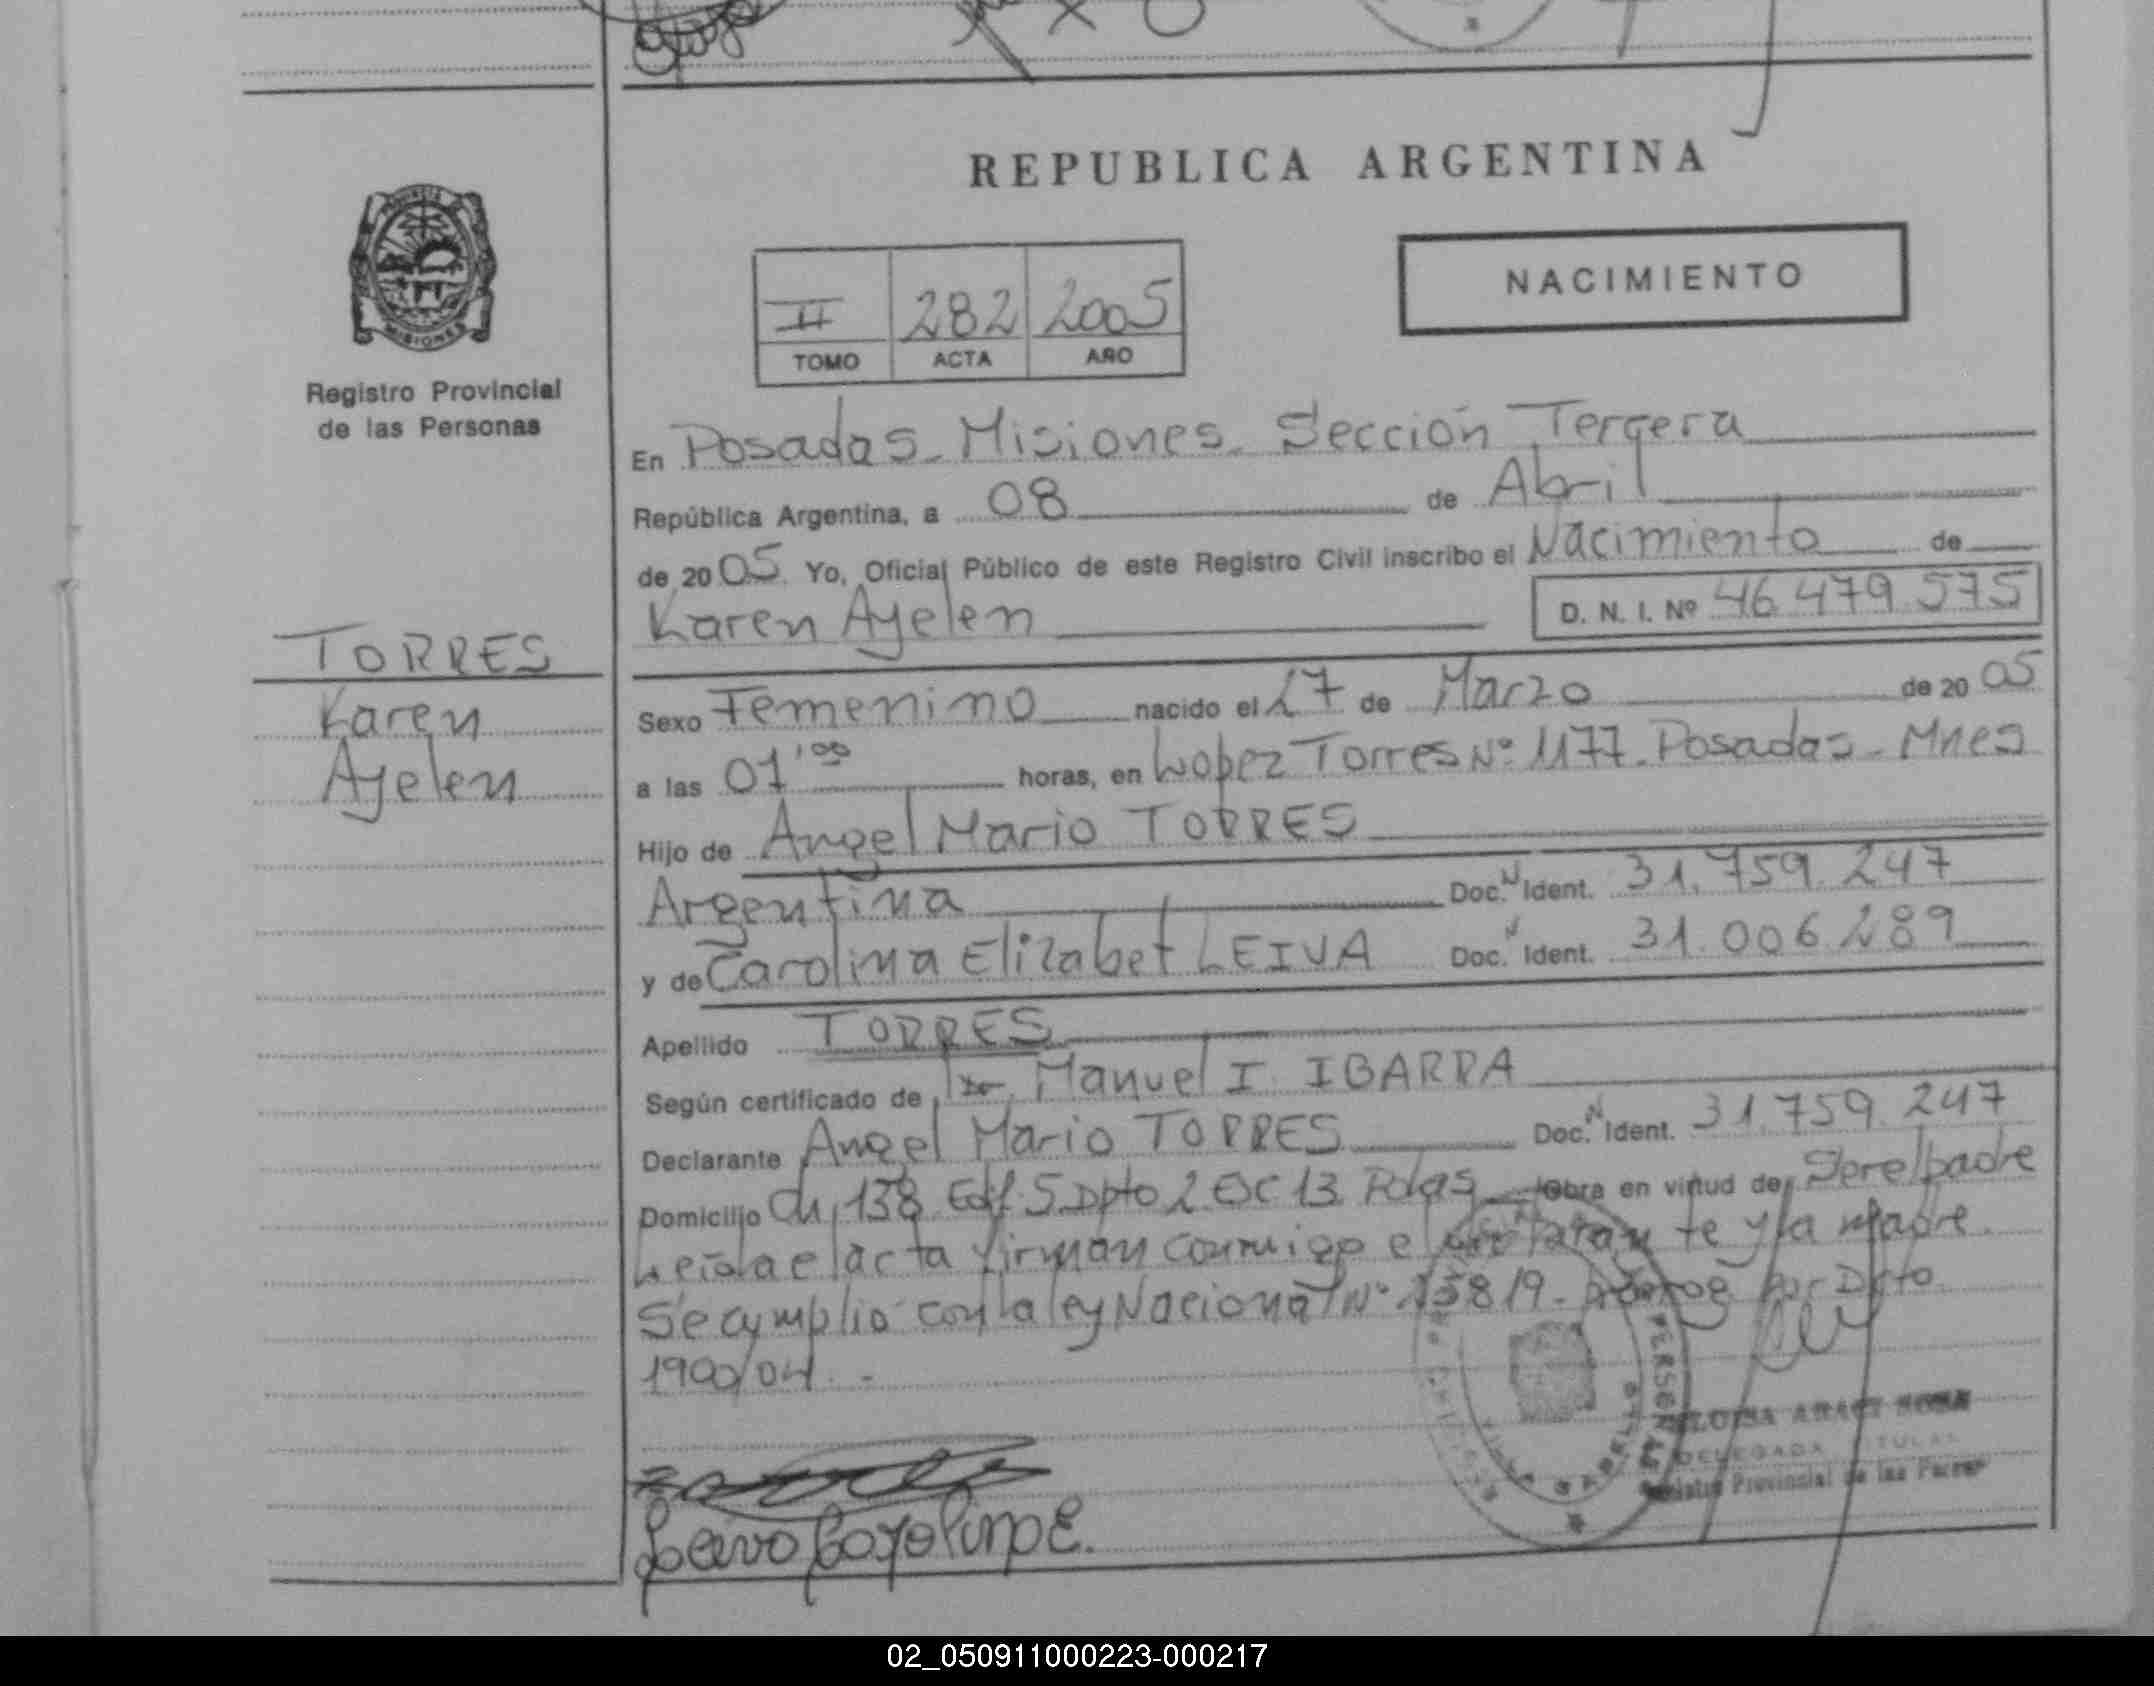 REPUBLICA ARGENTINA
PROVINCIA
MISIONES
Registro Provincial
de las Personas
NACIMIENTO
II 282 2005
TOMO ACTA AÑO
En Posadas - Misiones - Sección Tercera
República Argentina, a 08 de Abril
de 2005. Yo, Oficial Público de este Registro Civil inscribo el Nacimiento de
Karen Ayelen D. N. I. Nº 46 479 575
TORRES
Karen
Ayelen
Sexo Femenino nacido el 27 de Marzo de 2005
a las 01'00 horas, en Lopez Torres Nº 1177. Posadas - Mnes
Hijo de Angel Mario TORRES
Argentina Doc. N Ident. 31.759.247
y de Carolina Elizabet LEIVA Doc. N Ident. 31.006.289
Apellido TORRES
Según certificado de Manuel I. IBARRA
Declarante Angel Mario TORRES Doc. N Ident. 31.759.247
Domicilio Ch. 138 Edif. 5 Dpto 2 Esc 13 Pdas Obra en virtud de Ser el padre
Leida el acta firman conmigo el y la madre.
Se cumplio con la ley Nacional Nº 25819 - por Dcto
1900/04. -
DELEGADA TITULAR
Registro Provincial de las Personas
Leiva Carolina E.
02_050911000223-000217